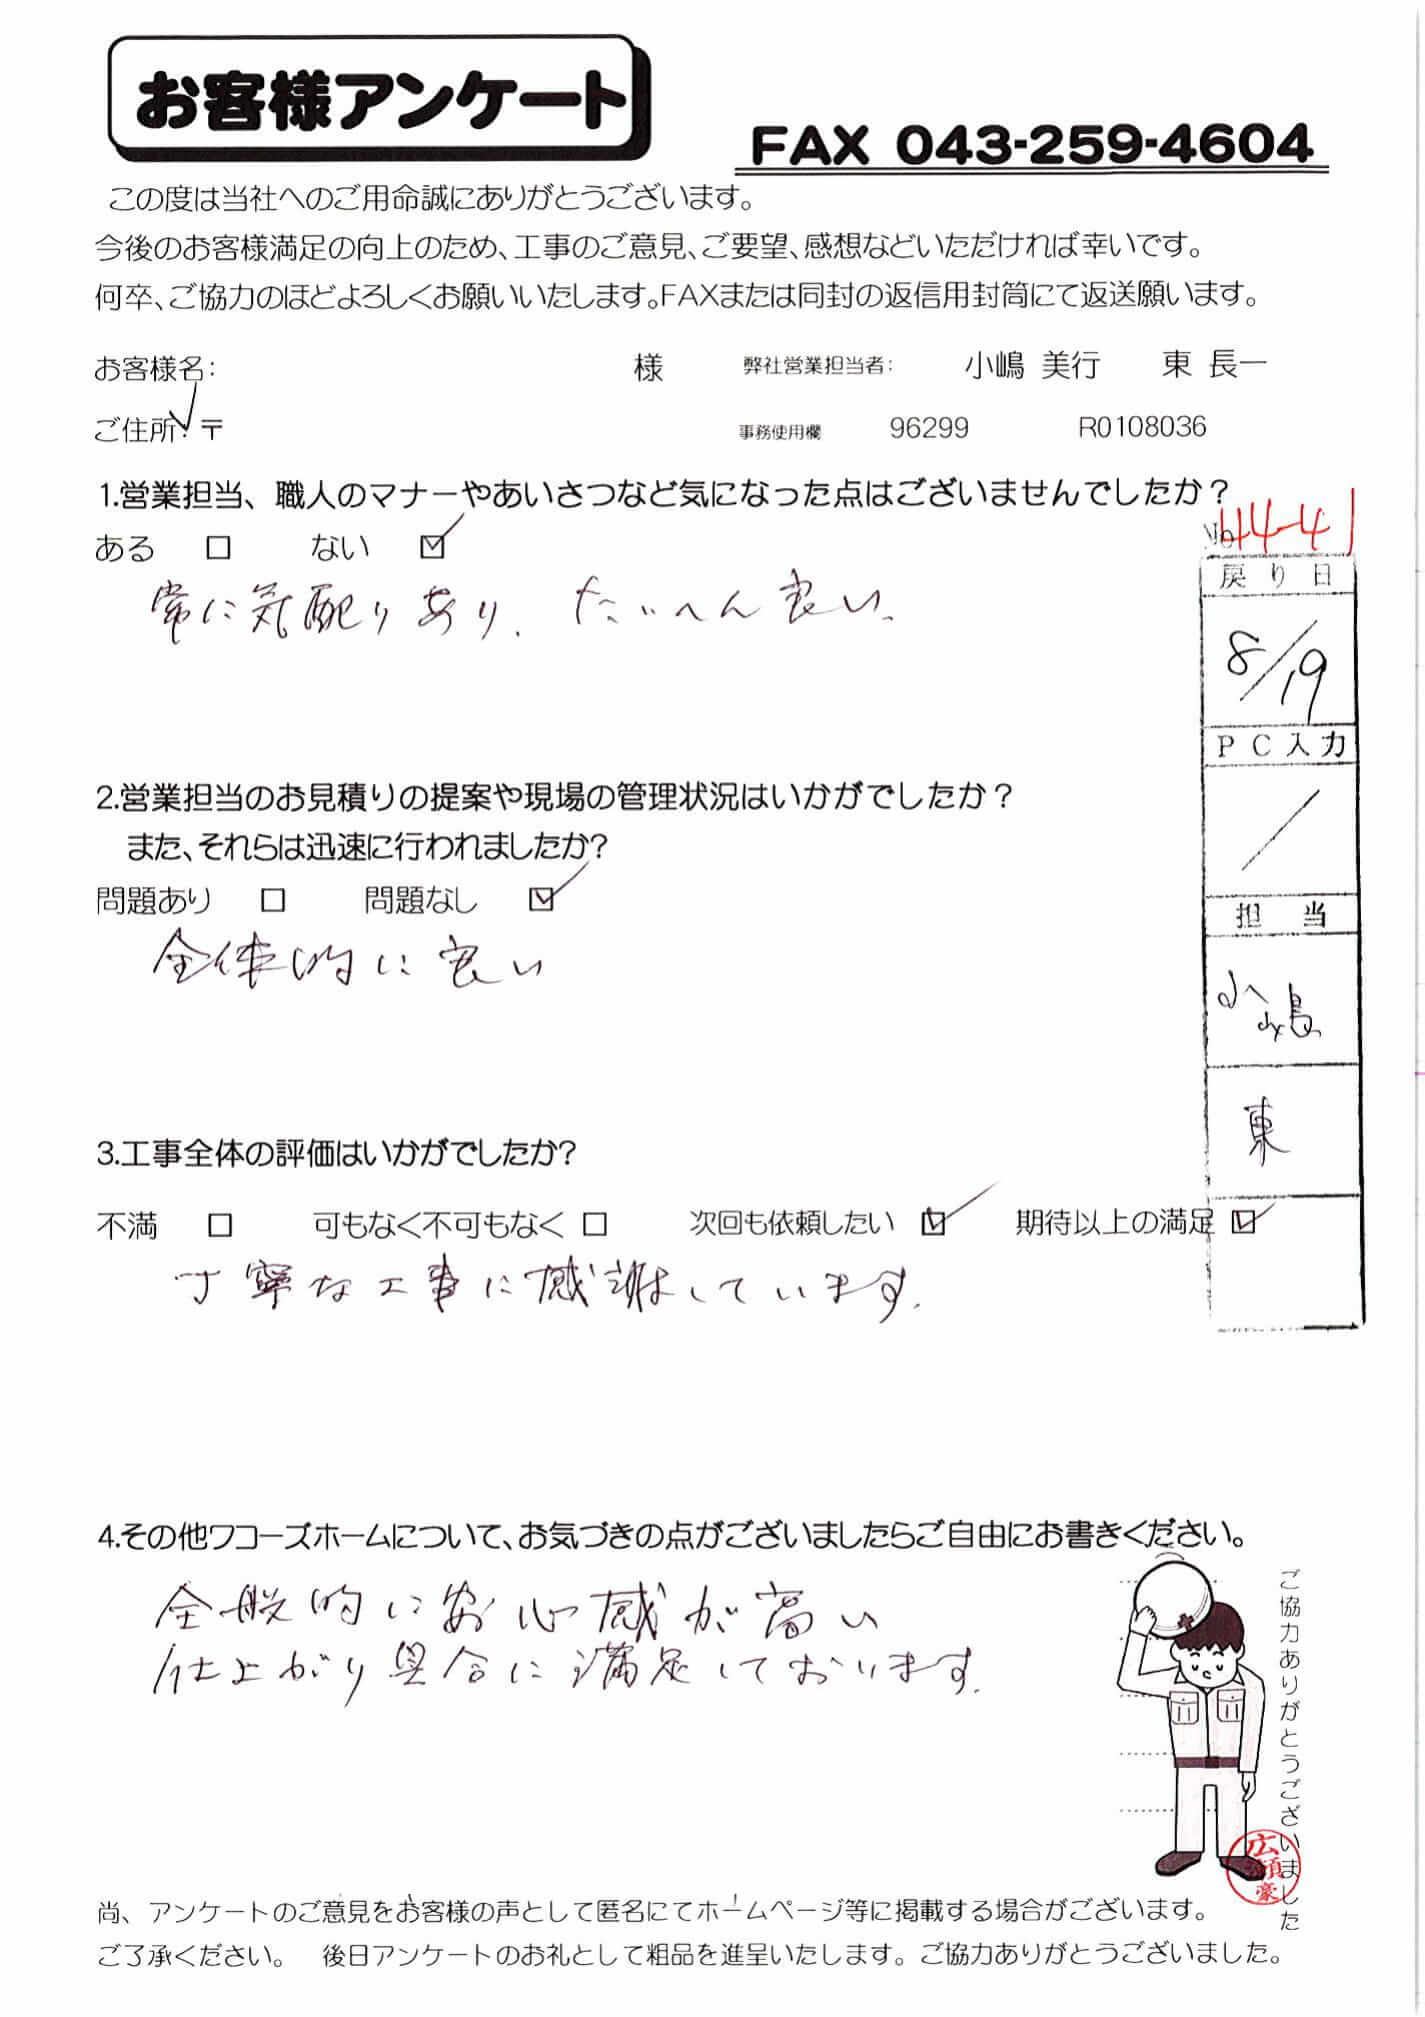 お客様アンケート
FAX 043-259-4604
この度は当社へのご用命誠にありがとうございます。
今後のお客様満足の向上のため、工事のご意見、ご要望、感想などいただければ幸いです。
何卒、ご協力のほどよろしくお願いいたします。FAXまたは同封の返信用封筒にて返送願います。
お客様名: 様 弊社営業担当者: 小嶋 美行 東 長一
ご住所: 〒 事務使用欄 96299 R0108036
1.営業担当、職人のマナーやあいさつなど気になった点はございませんでしたか？
ある □ ない ☑
常に気配りあり、たいへん良い。
2.営業担当のお見積りの提案や現場の管理状況はいかがでしたか？
また、それらは迅速に行われましたか?
問題あり □ 問題なし ☑
全体的に良い
3.工事全体の評価はいかがでしたか?
不満 □ 可もなく不可もなく □ 次回も依頼したい ☑ 期待以上の満足 ☑
丁寧な工事に感謝しています。
4.その他ワコーズホームについて、お気づきの点がございましたらご自由にお書きください。
全般的に安心感が高い
仕上がり具合に満足しております。
No 44-41
戻り日
8/19
PC入力
/
担当
小嶋
東
ご協力ありがとうございました
広瀬豪
尚、アンケートのご意見をお客様の声として匿名にてホームページ等に掲載する場合がございます。
ご了承ください。 後日アンケートのお礼として粗品を進呈いたします。ご協力ありがとうございました。